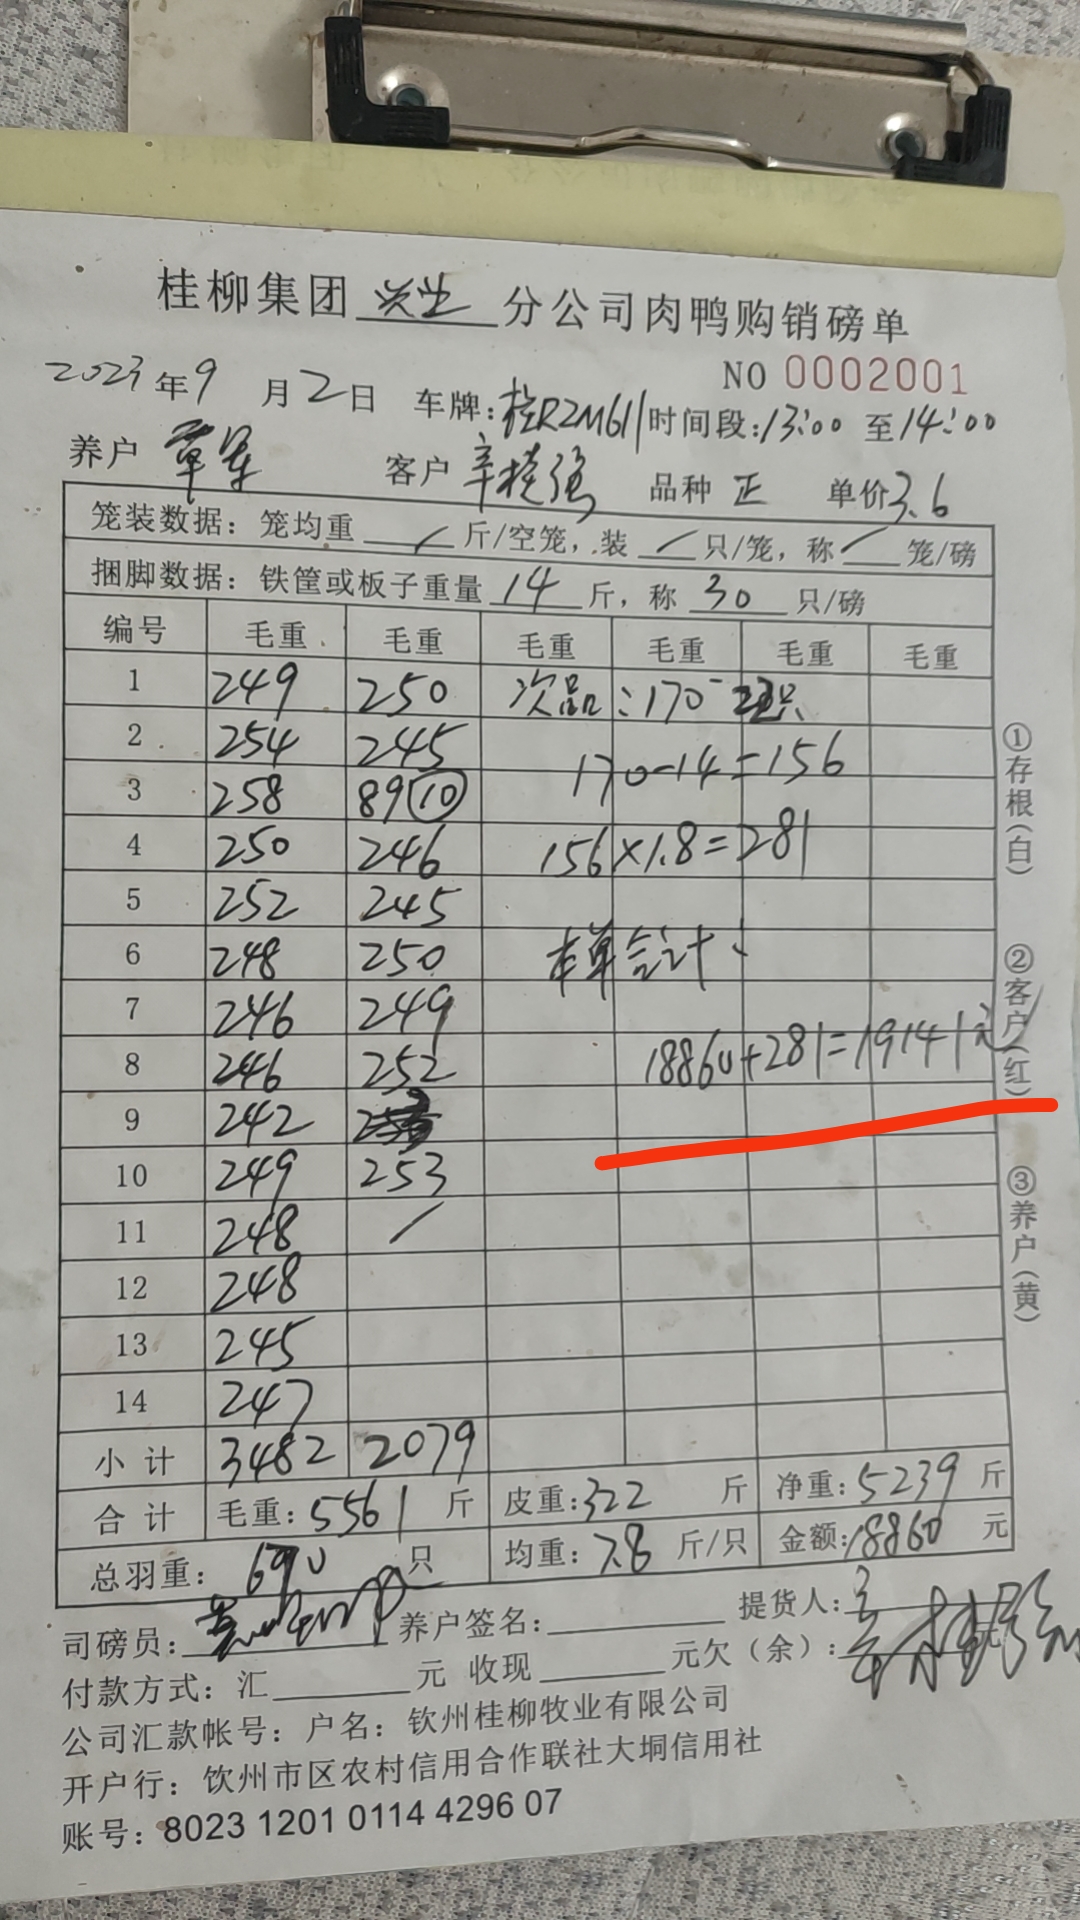 桂柳集团 兴业 分公司肉鸭购销磅单
NO 0002001
2023年9月2日 车牌:桂R2M611 时间段:13:00至14:00
养户 覃军 客户 辛桂强 品种 正 单价3.6
笼装数据:笼均重 / 斤/空笼,装 / 只/笼,称 / 笼/磅
捆脚数据:铁筐或板子重量 14 斤,称 30 只/磅
编号 毛重 毛重 毛重 毛重 毛重 毛重
1 249 250 次品:170
2 254 245 170-14=156
3 258 89(10)
4 250 246 156×1.8=281
5 252 245
6 248 250 本单合计:
7 246 249
8 246 252 18860+281=19141元
9 242
10 249 253
11 248 /
12 248
13 245
14 247
小计 3482 2079
合计 毛重:5561斤 皮重:322斤 净重:5239斤
总羽重:690只 均重:7.8斤/只 金额:18860元
司磅员: 养户签名: 提货人:辛桂强
付款方式:汇 元 收现 元欠(余): 元
公司汇款帐号:户名:钦州桂柳牧业有限公司
开户行:钦州市区农村信用合作联社大垌信用社
账号:8023 1201 0114 4296 07
①存根(白)
②客户(红)
③养户(黄)